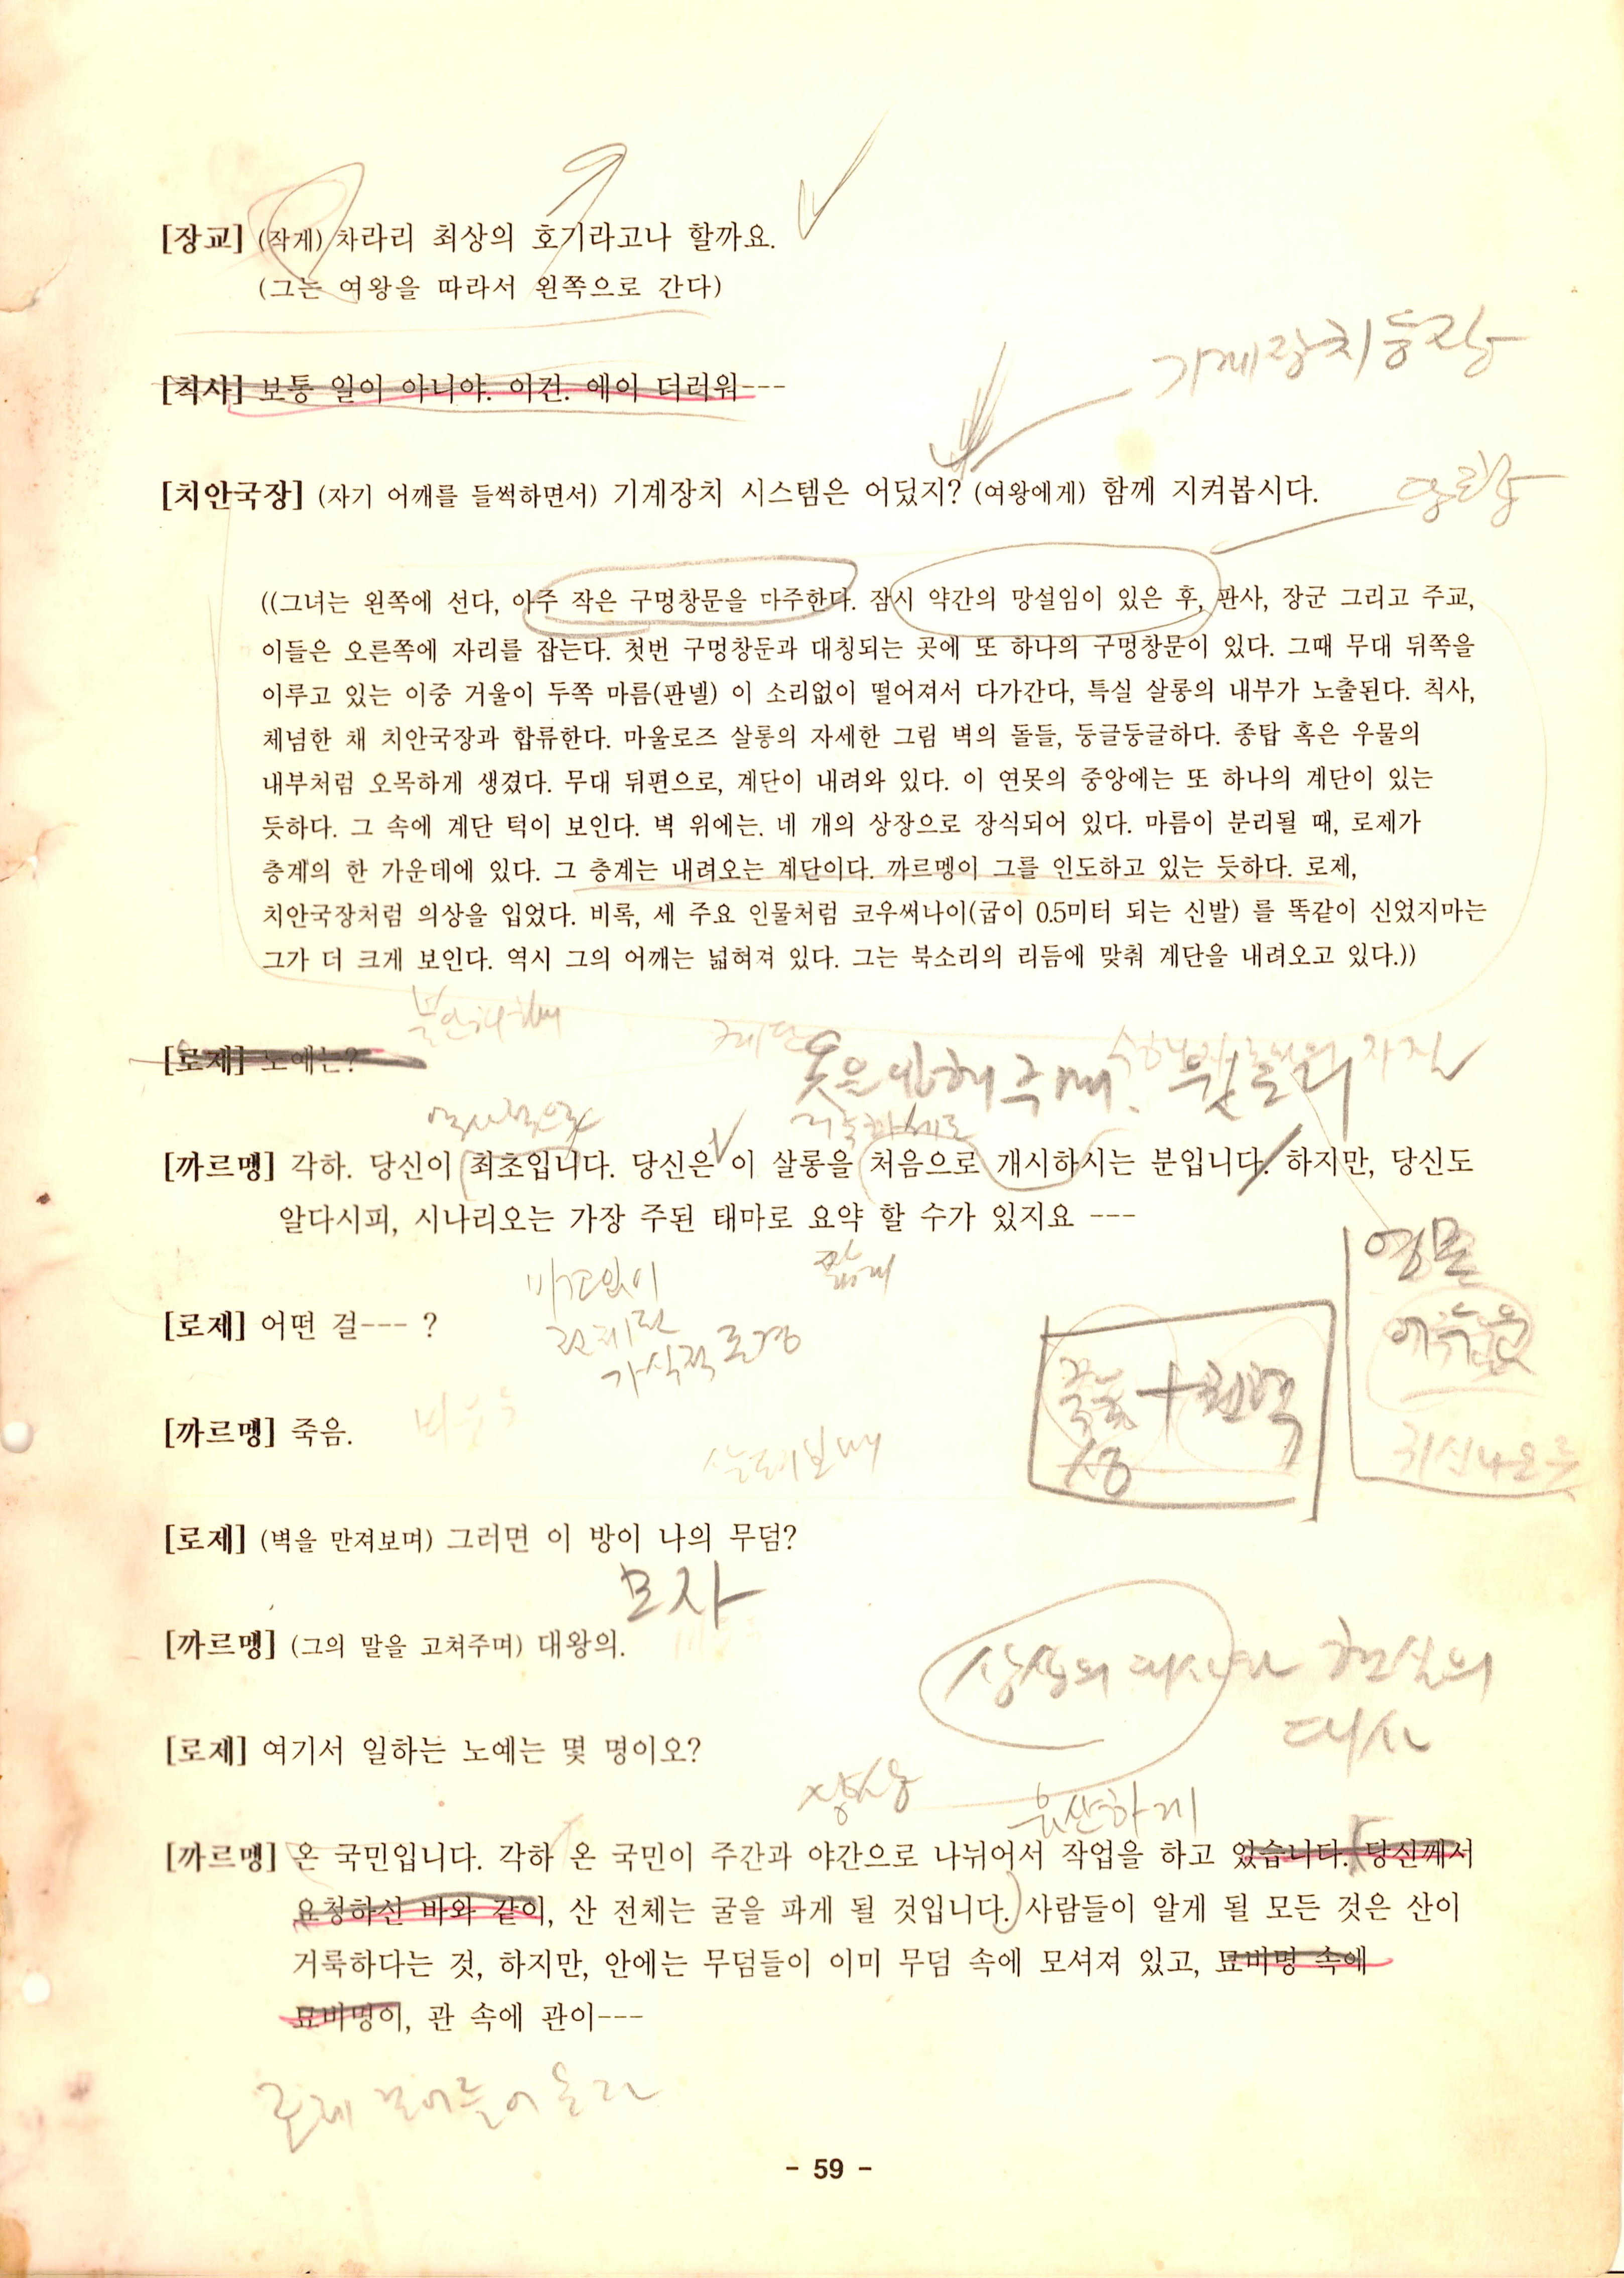 [장교] (작게) 차라리 최상의 호기라고나 할까요.
(그는 여왕을 따라서 왼쪽으로 간다)
기계장치등장
[칙사] 보통 일이 아니야. 이건. 에이 더러워---
[치안국장] (자기 어깨를 들썩하면서) 기계장치 시스템은 어딨지? (여왕에게) 함께 지켜봅시다.
등장
((그녀는 왼쪽에 선다, 아주 작은 구멍창문을 마주한다. 잠시 약간의 망설임이 있은 후, 판사, 장군 그리고 주교,
이들은 오른쪽에 자리를 잡는다. 첫번 구멍창문과 대칭되는 곳에 또 하나의 구멍창문이 있다. 그때 무대 뒤쪽을
이루고 있는 이중 거울이 두쪽 마름(판넬) 이 소리없이 떨어져서 다가간다, 특실 살롱의 내부가 노출된다. 칙사,
체념한 채 치안국장과 합류한다. 마울로즈 살롱의 자세한 그림 벽의 돌들, 둥글둥글하다. 종탑 혹은 우물의
내부처럼 오목하게 생겼다. 무대 뒤편으로, 계단이 내려와 있다. 이 연못의 중앙에는 또 하나의 계단이 있는
듯하다. 그 속에 계단 턱이 보인다. 벽 위에는. 네 개의 상장으로 장식되어 있다. 마름이 분리될 때, 로제가
층계의 한 가운데에 있다. 그 층계는 내려오는 계단이다. 까르멩이 그를 인도하고 있는 듯하다. 로제,
치안국장처럼 의상을 입었다. 비록, 세 주요 인물처럼 코우써나이(굽이 0.5미터 되는 신발) 를 똑같이 신었지마는
그가 더 크게 보인다. 역시 그의 어깨는 넓혀져 있다. 그는 북소리의 리듬에 맞춰 계단을 내려오고 있다.))
불안해하며
[로제] 노예는?
[까르멩] 각하. 당신이 최초입니다. 당신은 이 살롱을 처음으로 개시하시는 분입니다. 하지만, 당신도
알다시피, 시나리오는 가장 주된 태마로 요약 할 수가 있지요 ---
짧게
[로제] 어떤 걸--- ?
가식적
[까르멩] 죽음.
살펴보며
[로제] (벽을 만져보며) 그러면 이 방이 나의 무덤?
모자
[까르멩] (그의 말을 고쳐주며) 대왕의.
상상의 대사와 현실의
대사
[로제] 여기서 일하는 노예는 몇 명이오?
음산하게
[까르멩] 온 국민입니다. 각하 온 국민이 주간과 야간으로 나뉘어서 작업을 하고 있습니다. 당신께서
요청하신 바와 같이, 산 전체는 굴을 파게 될 것입니다. 사람들이 알게 될 모든 것은 산이
거룩하다는 것, 하지만, 안에는 무덤들이 이미 무덤 속에 모셔져 있고, 묘비명 속에
묘비명이, 관 속에 관이---
로제 걸어들어온다
- 59 -